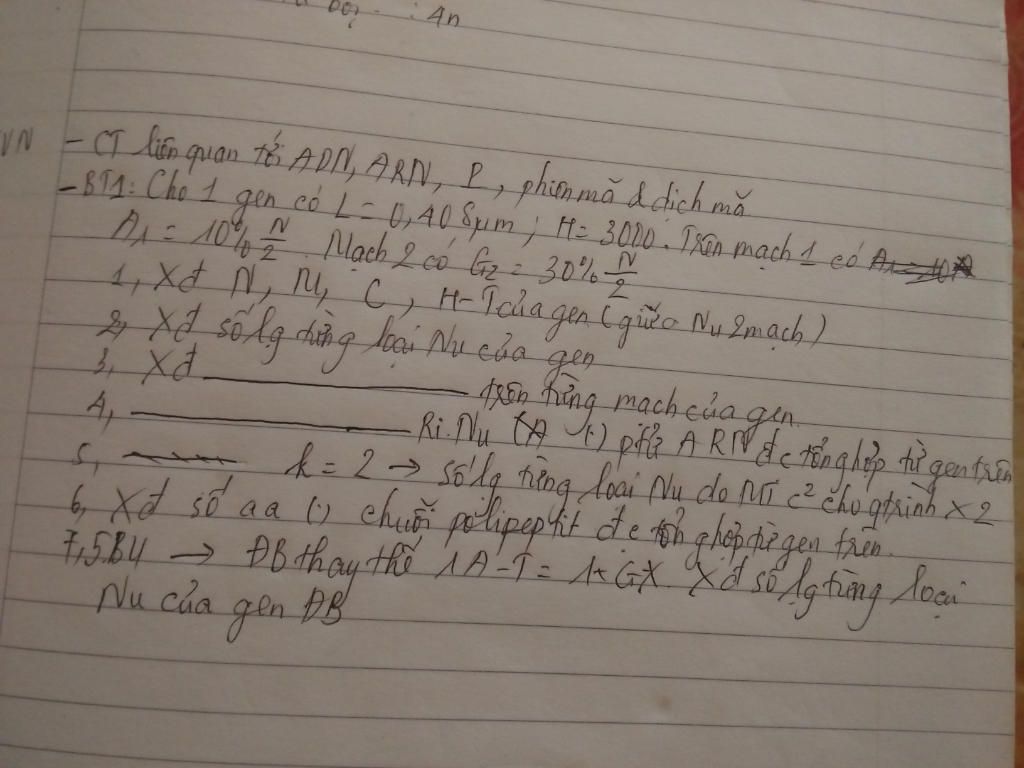 : 4n
VN
- CT liên quan tới ADN, ARN, P, phiên mã & dịch mã
- BT1: Cho 1 gen có L = 0,408µm ; H = 3000. Trên mạch 1 có
A1 = 10% N/2. Mạch 2 có G2 = 30% N/2
1, Xđ N, M, C, H-T của gen (giữa Nu 2 mạch)
2, Xđ số lg từng loại Nu của gen
3, Xđ trên từng mạch của gen.
4, Ri.Nu ptử ARN đc tổng hợp từ gen trên
5, k = 2 → số lg từng loại Nu do MT c² cho qtrình x2
6, Xđ số aa (.) chuỗi pôlipeptit đc tổng hợp từ gen trên.
7, 5.BU → ĐB thay thế 1A-T = 1 GX Xđ số lg từng loại
Nu của gen ĐB